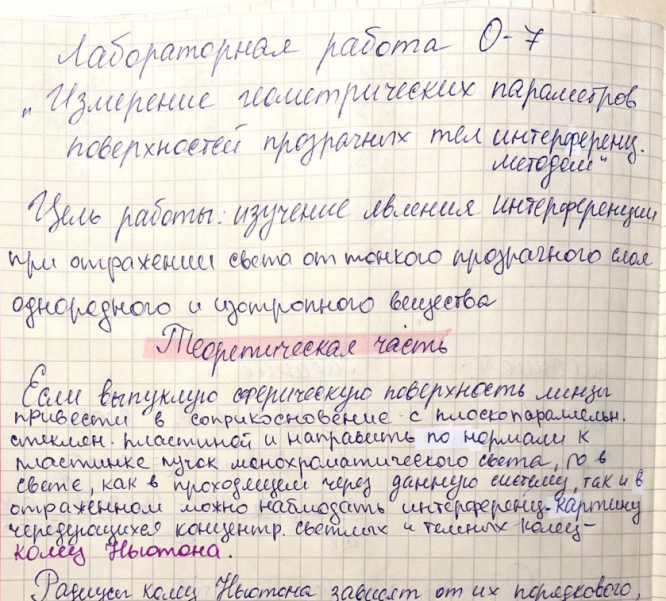 Лабораторная работа О-7
"Измерение геометрических параметров
поверхностей прозрачных тел интерференц.
методом"
Цель работы: изучение явления интерференции
при отражении света от тонкого прозрачного слоя
однородного и изотропного вещества
Теоретическая часть
Если выпуклую сферическую поверхность линзы
привести в соприкосновение с плоскопараллельн.
стеклян. пластиной и направить по нормали к
пластинке пучок монохроматического света, то в
свете, как в проходящем через данную систему, так и в
отраженном можно наблюдать интерференц. картину
чередующихся концентр. светлых и темных колец-
колец Ньютона.
Радиусы колец Ньютона зависят от их порядкового,